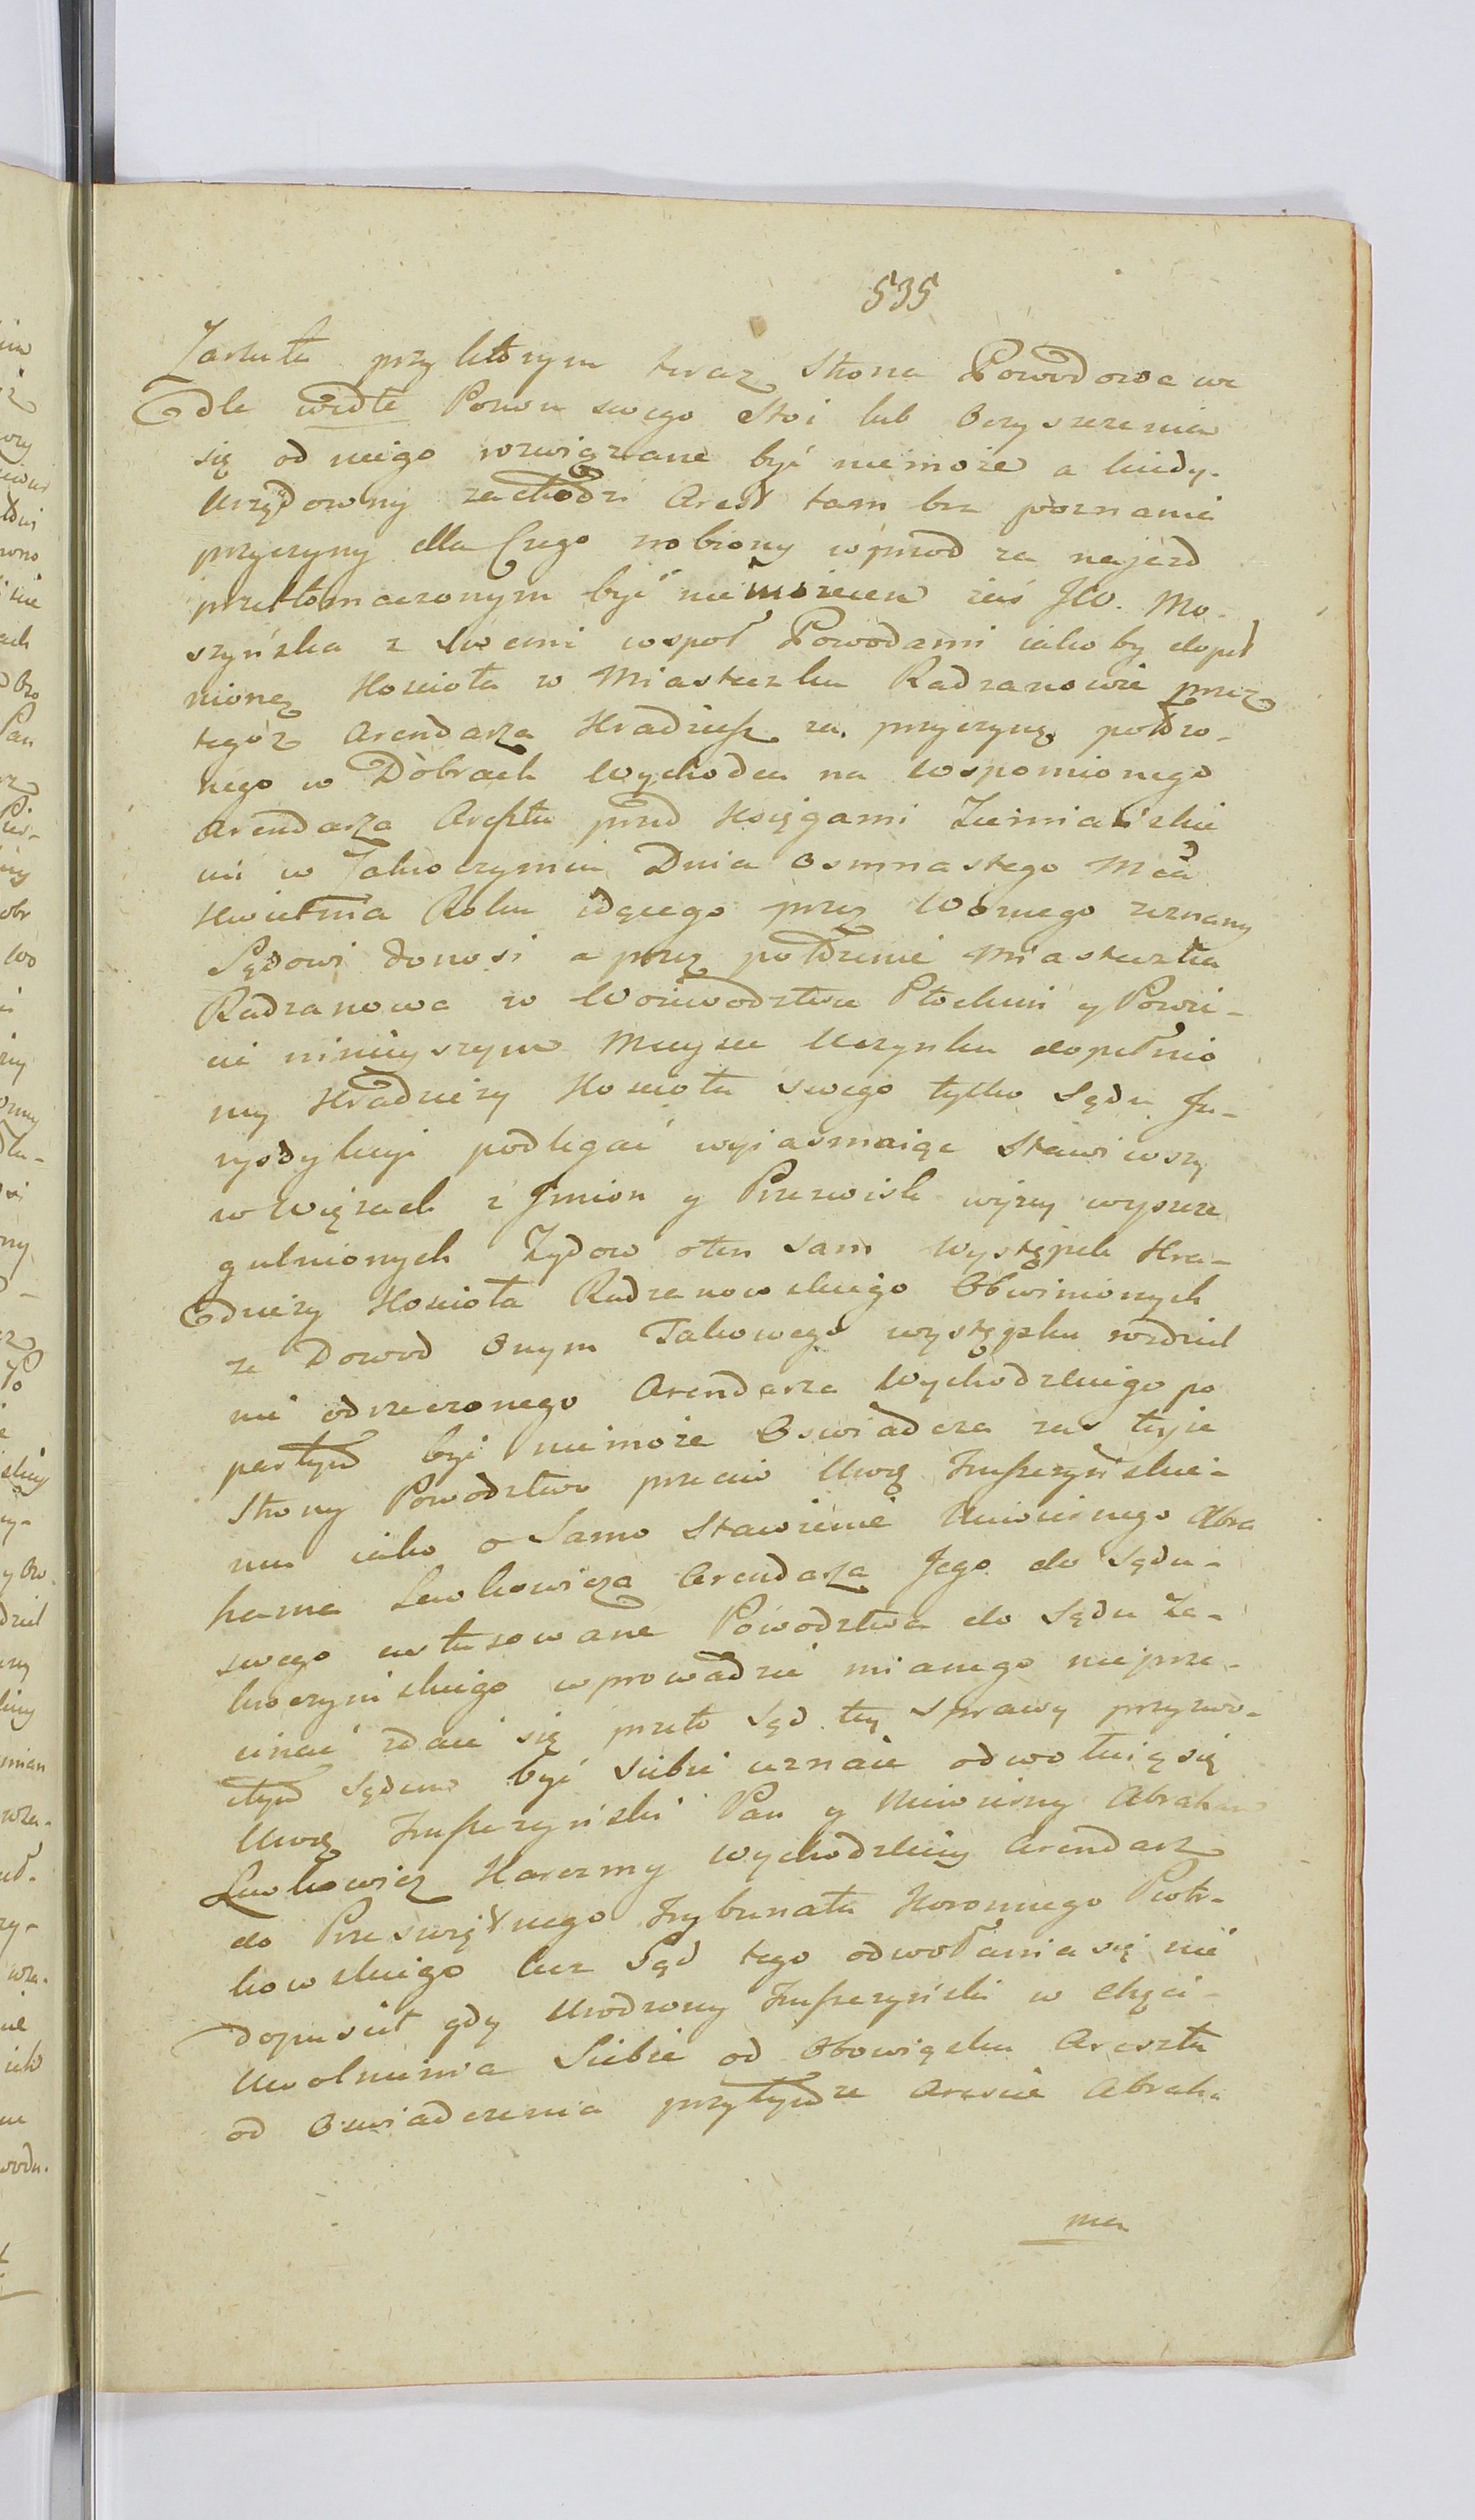 535
Zarzutu przy ktorym teraz Strona Powodowa we
dle wedle Pozwu swego Stoi lub Oczyszczenia
się od niego rozwiązane być niemoże a kiedy-
Urzędowny zachodzi Areszt tam bez poznania
przyczyny dla Czego zrobiony wprzod za najazd
przetłomaczonym być niemożeen zaś JW. Mo-
szyńska z Swemi wspoł Powodami iakoby dopeł
nioney Kościoła w Miasteczku Radzanowie przez
tegoż Arendarza Kradzieży za przyczynę położo-
nego w Dobrach Wychodcu na Wspomionego
Arendarza Aresztu przed Księgami Ziemiańskie
mi w Zakroczymiu Dnia Osmnastego Mca
Kwietnia Roku idącego przez Woznego zeznany
Sądowi donosi a przez położenie Miasteczka
Radzanowa w Woiewodztwie Płockim y Powie-
cie ninieyszym Mieysce Uczynku dopełnio
ney Kradzieży Kościoła swego tylko Sądu Ju-
rysdykcyi podlegać wyiasniaiąc Stawiwszy
w Więzach z Imion y Przezwisk wyżey wyszcze
gulnionych Zydow oten sam Występek Kra-
dzieży Kościoła Radzanowskiego Obwinionych
ze Dowod Onym Takowego występku wzdziel
nie odrzeczonego Arendarza Wychodzkiego po
partym być niemoże Oswiadcza zaś teyże
Strony Powodztwo przeciw Uwę Zruszczyńskie-
mu iako o Samo Stawienie Niewiernego Abra
hama Lewkowicza Arendarza Jego do Sądu-
swego usłusowane Powodztwa do Sądu Za-
kroczymskiego wprowadzić mianego nieprze-
cinać zdaie się przeto Sąd tey sprawy przyzwo-
itym Sądem być siebie uznaie odwołuią się
Uwę Zruszczyński Pan y Niewierny Abraham
Lewkowicz Karczmy Wychodzkiey Arendarz
do Przeświętnego Trybunału Koronnego Piotr-
kowskiego lecz Sąd tego odwołania się nie
dopuscił gdy Urodzony Zruszczyński w Chęci-
Uwolnienia Siebie od Obowiązku Aresztu
od Oswiadczenia przytymże Areście Abraha
ma